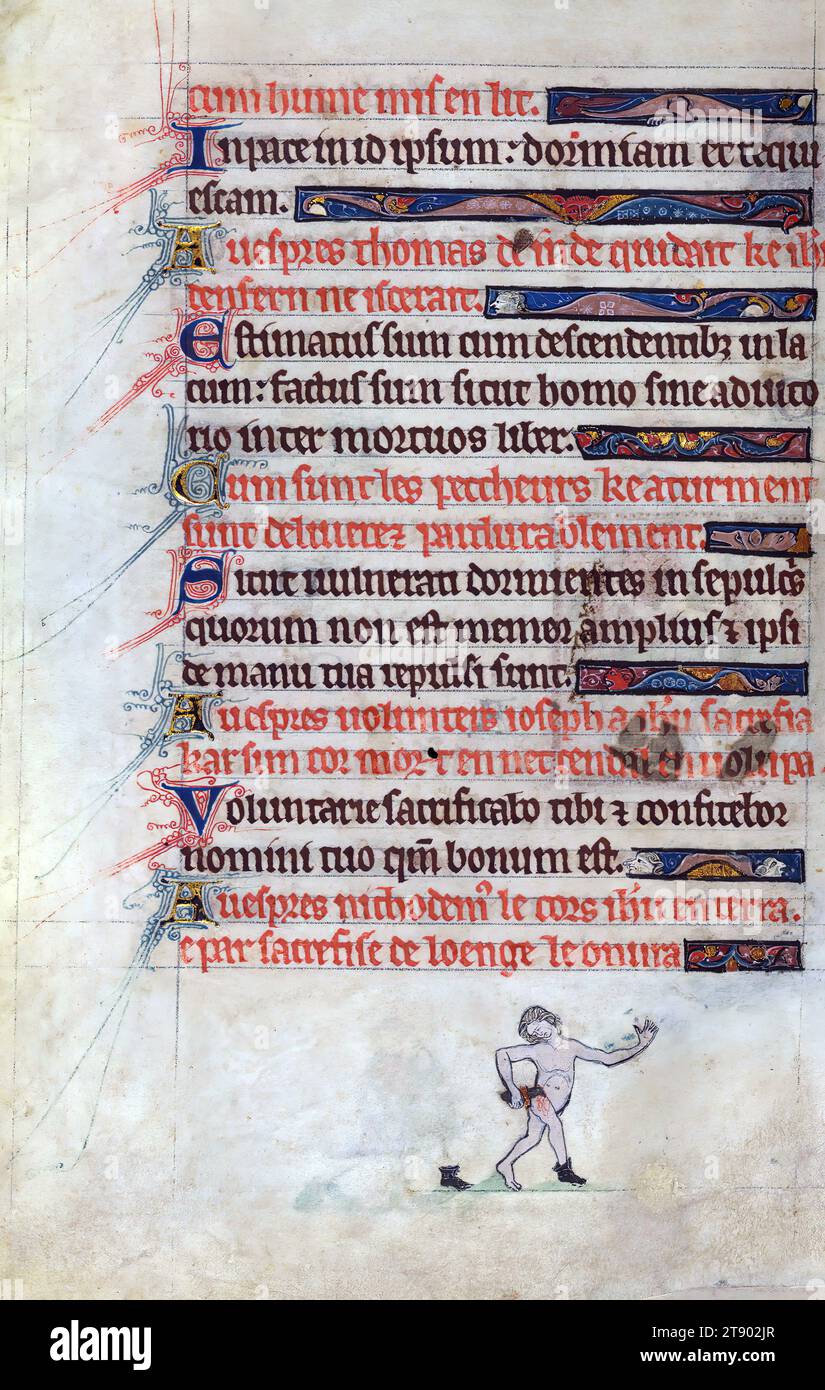 cum hume mis en lit.
In pace in id ipsum: dormiam et requi
escam.
Auespres thomas de inde quidait ke ihu
en ne
Estimatus sum cum descendentibꝫ in la
cum: factus sum sicut homo sine adiuto
rio inter mortuos liber.
Cum sunt les peccheurs ke a turment
sunt deliuerez pardurablement.
Sicut uulnerati dormientes in sepulcs
quorum non est memor amplius ⁊ ipsi
de manu tua repulsi sunt.
Auespres uolunters ioseph a ihu sacrefia
kar sun cor mor⁊
Voluntarie sacrificabo tibi ⁊ confitebor
nomini tuo qm bonum est.
Auespres nichodem le cors ihu en terra.
e par sacrefise de loenge le onura
alamy
Image ID: 2T902JR
www.alamy.com